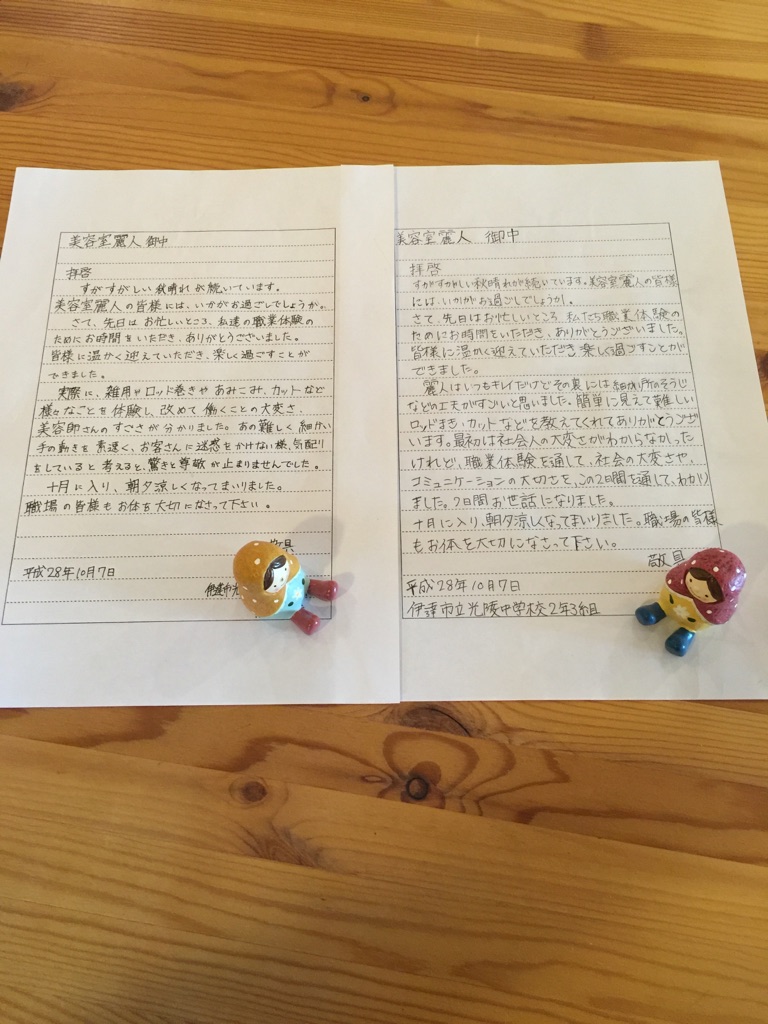 美容室麗人 御中
拝啓
すがすがしい秋晴れが続いています。
美容室麗人の皆様には、いかがお過ごしでしょうか。
さて、先日はお忙しいところ、私達の職業体験の
ためにお時間をいただき、ありがとうございました。
皆様に温かく迎えていただき、楽しく過ごすことが
できました。
実際に、雑用やロッド巻きやあみこみ、カットなど
様々なことを体験し、改めて働くことの大変さ、
美容師さんのすごさが分かりました。あの難しく細かい
手の動きを素速く、お客さんに迷惑をかけない様、気配り
をしていると考えると、驚きと尊敬が止まりませんでした。
十月に入り、朝夕涼しくなってまいりました。
職場の皆様もお体を大切になさって下さい。
敬具
平成28年10月7日
伊達市立光
美容室麗人 御中
拝啓
すがすがしい秋晴れが続いています。美容室麗人の皆様
には、いかがお過ごしでしょうか。
さて、先日はお忙しいところ、私たち職業体験の
ためにお時間をいただき、ありがとうございました。
皆様に温かく迎えていただき楽しく過ごすことが
できました。
麗人はいつもキレイだけどその裏には細かい所のそうじ
などの工夫がすごいと思いました。簡単に見えて難しい
ロッドまき、カットなどを教えてくれてありがとうござ
います。最初は社会人の大変さがわからなかった
けれど、職業体験を通して、社会の大変さや、
コミュニケーションの大切さを、この2日間を通して、わかり
ました。2日間お世話になりました。
十月に入り、朝夕涼しくなってまいりました。職場の皆様
もお体を大切になさって下さい。
敬具
平成28年10月7日
伊達市立光陵中学校2年3組